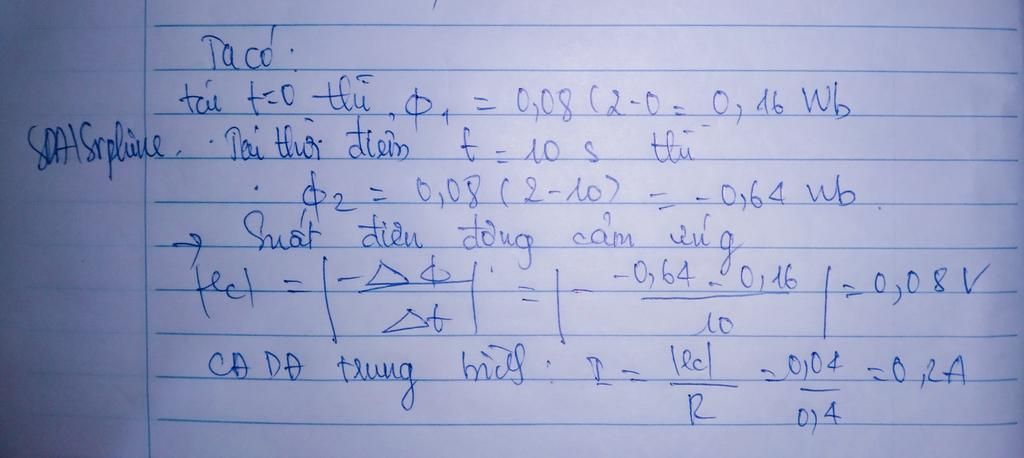 Ta có:
tại t=0 thì ϕ₁ = 0,08 (2-0 = 0,16 Wb
Tại thời điểm t = 10 s thì
ϕ₂ = 0,08 (2-10) = -0,64 Wb.
→ Suất điện động cảm ứng
|ec| = |-Δϕ/Δt| = |- -0,64 - 0,16/10| = 0,08 V
CĐDĐ trung bình: I = |ec|/R = 0,04/0,4 = 0,2A